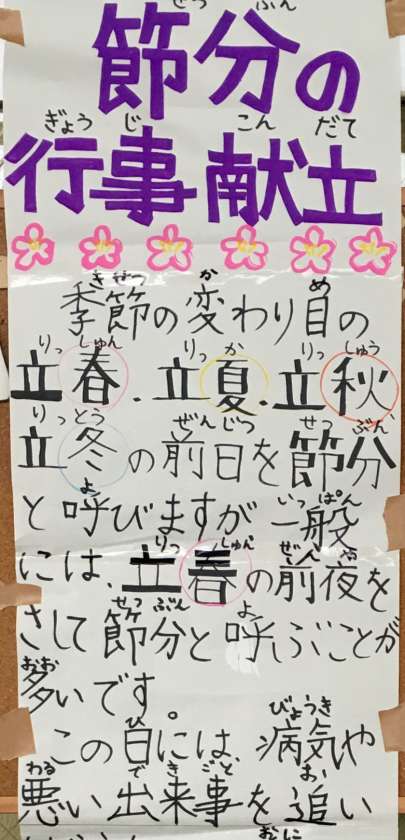 節分の
行事献立
季節の変わり目の
立春.立夏.立秋
立冬の前日を節分
と呼びますが一般
には、立春の前夜を
さして節分と呼ぶことが
多いです。
この日には、病気や
悪い出来事を追い